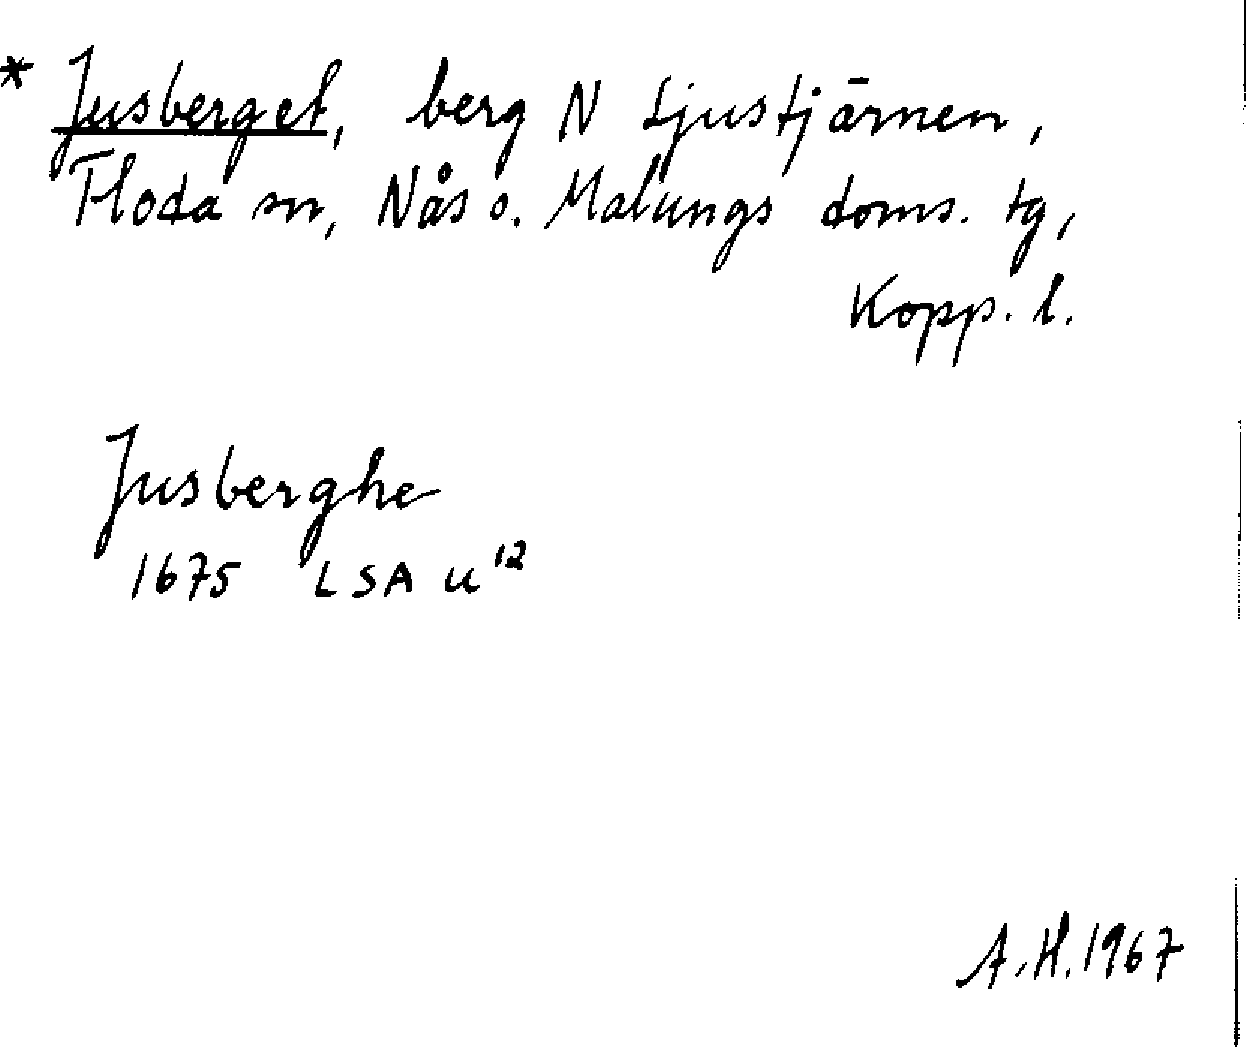 * Jusberget, berg N Ljustjärnen,
Floda sn, Nås o. Malungs doms. tg,
Kopp. l.
Jusberghe
1675 LSA U¹²
A.H. 1967